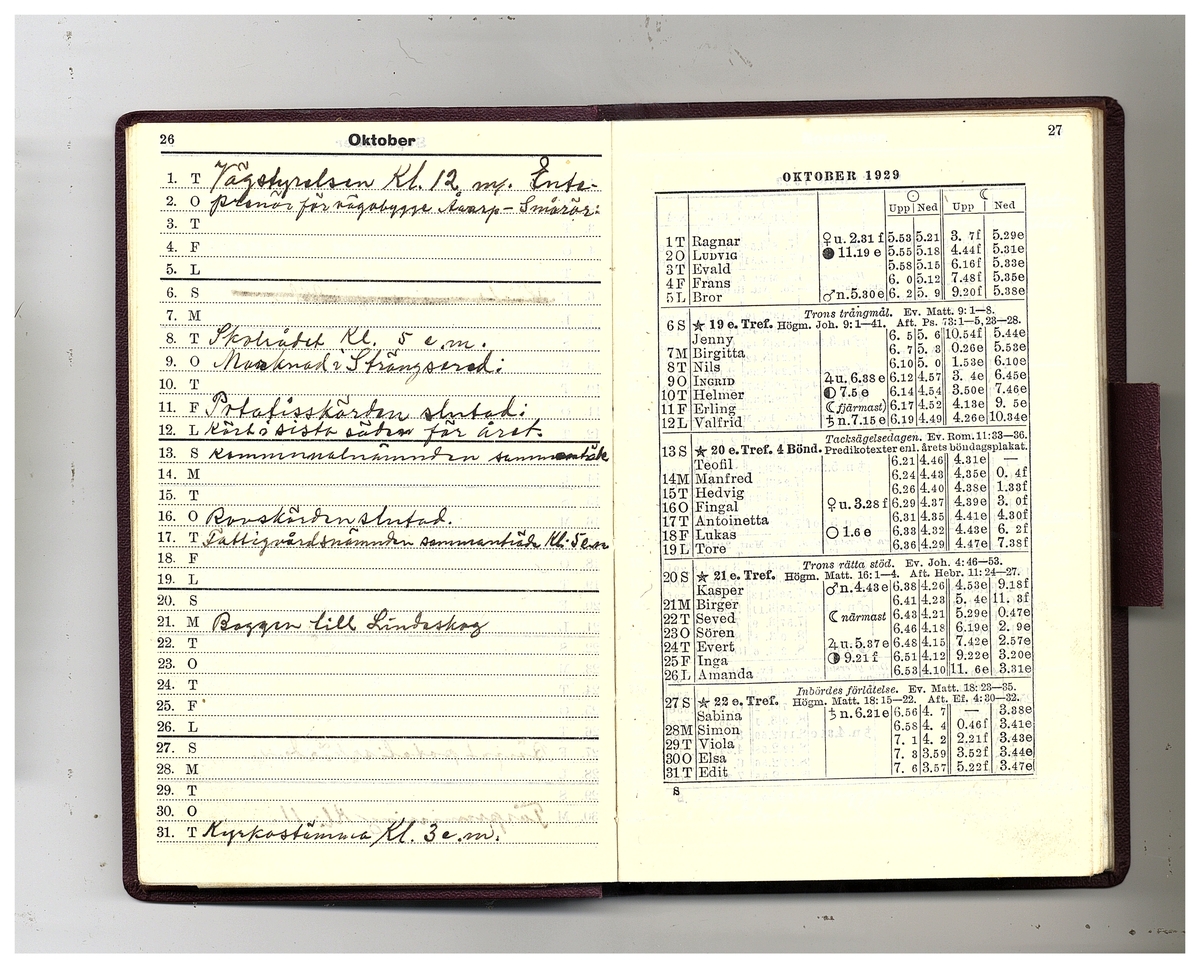 26 Oktober
1. T Vägstyrelsen Kl. 12 m/. Ente-
2. O prenör för vägabygge Åvarp - Smörör:
3. T
4. F
5. L
6. S
7. M
8. T Skolrådet Kl. 5 e.m.
9. O Marknad i Strängsered:
10. T
11. F Potatisskörden slutad:
12. L Kört i sista säden för året.
13. S Kommunalnämnden sammanträde
14. M
15. T
16. O Rovskörden slutad.
17. T Fattigvårdsnämnden sammanträde Kl. 5 e.m
18. F
19. L
20. S
21. M Baggen till Lindeskog
22. T
23. O
24. T
25. F
26. L
27. S
28. M
29. T
30. O
31. T Kyrkostämma Kl. 3 e.m.
27
OKTOBER 1929
☉ ☾
Upp Ned Upp Ned
1 T Ragnar ♀ u. 2.31 f 5.53 5.21 3. 7f 5.29e
2 O LUDVIG ● 11.19 e 5.55 5.18 4.44f 5.31e
3 T Evald 5.58 5.15 6.16f 5.33e
4 F Frans 6. 0 5.12 7.48f 5.35e
5 L Bror ♂ n. 5.30 e 6. 2 5. 9 9.20f 5.38e
Trons trångmål. Ev. Matt. 9: 1—8.
6 S ★ 19 e. Tref. Högm. Joh. 9: 1—41. Aft. Ps. 73: 1—5, 23—28.
Jenny 6. 5 5. 6 10.54f 5.44e
7 M Birgitta 6. 7 5. 3 0.26e 5.53e
8 T Nils 6.10 5. 0 1.53e 6.10e
9 O INGRID ♃ u. 6.38 e 6.12 4.57 3. 4e 6.45e
10 T Helmer ◐ 7.5 e 6.14 4.54 3.50e 7.46e
11 F Erling ☾ fjärmast) 6.17 4.52 4.13e 9. 5e
12 L Valfrid ♄ n. 7.15 e 6.19 4.49 4.26e 10.34e
Tacksägelsedagen. Ev. Rom. 11: 33—36.
13 S ★ 20 e. Tref. 4 Bönd. Predikotexter enl. årets böndagsplakat.
Teofil 6.21 4.46 4.31e —
14 M Manfred 6.24 4.43 4.35e 0. 4f
15 T Hedvig 6.26 4.40 4.38e 1.33f
16 O Fingal ♀ u. 3.28 f 6.29 4.37 4.39e 3. 0f
17 T Antoinetta 6.31 4.35 4.41e 4.30f
18 F Lukas ○ 1.6 e 6.33 4.32 4.43e 6. 2f
19 L Tore 6.36 4.29 4.47e 7.38f
Trons rätta stöd. Ev. Joh. 4: 46—53.
20 S ★ 21 e. Tref. Högm. Matt. 16: 1—4. Aft. Hebr. 11: 24—27.
Kasper ♂ n. 4.43 e 6.38 4.26 4.53e 9.18f
21 M Birger 6.41 4.23 5. 4e 11. 3f
22 T Seved ☾ närmast 6.43 4.21 5.29e 0.47e
23 O Sören 6.46 4.18 6.19e 2. 9e
24 T Evert ♃ u. 5.37 e 6.48 4.15 7.42e 2.57e
25 F Inga ◑ 9.21 f 6.51 4.12 9.22e 3.20e
26 L Amanda 6.53 4.10 11. 6e 3.31e
Inbördes förlåtelse. Ev. Matt. 18: 23—35.
27 S ★ 22 e. Tref. Högm. Matt. 18: 15—22. Aft. Ef. 4: 30—32.
Sabina ♄ n. 6.21 e 6.56 4. 7 — 3.38e
28 M Simon 6.58 4. 4 0.46f 3.41e
29 T Viola 7. 1 4. 2 2.21f 3.43e
30 O Elsa 7. 3 3.59 3.52f 3.44e
31 T Edit 7. 6 3.57 5.22f 3.47e
S